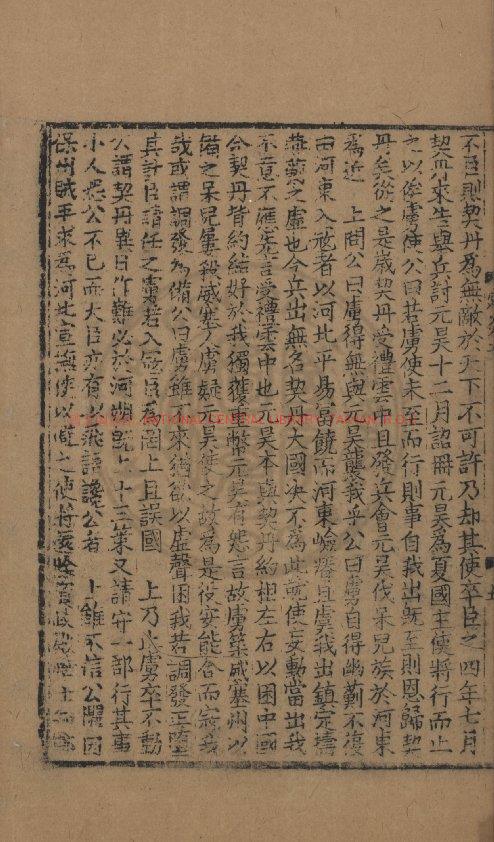 不臣則契丹為無敵於天下不可許乃却其使卒臣之四年七月
契丹來告與兵討元昊十二月詔冊元昊為夏國主使將行而止
之以俟虜使公曰若虜使未至而行則事自我出既至則恩歸契
丹矣從之是歲契丹受禮雲中且發兵會元昊伐呆兒族於河東
為近 上問公曰虜得無與元昊襲我乎公曰虜自得幽薊不復
由河東入寇者以河北平易富饒而河東嶮瘠且虞我出鎮定擣
燕薊之虛也今兵出無名契丹大國決不為此就使妄動當出我
不意不應先言受禮雲中也元昊本與契丹約相左右以困中國
今契丹背約結好於我獨獲重幣元昊有怨言故虜築威塞州以
備之呆兒屢殺威塞人虜疑元昊使之故為是役安能合而寇我
哉或謂調發為備公曰虜雖不來猶欲以虛聲困我若調發正墮
其計臣請任之虜若入寇臣為罔上且誤國 上乃止虜卒不動
公謂契丹異日作難必於河朔既上十三策又請守一部行其事
小人怨公不已而大臣亦有以飛語讒公者 上雖不信公懼因
保州賊平求為河北宣撫使以避之使將還
NATIONAL CENTRAL LIBRARY